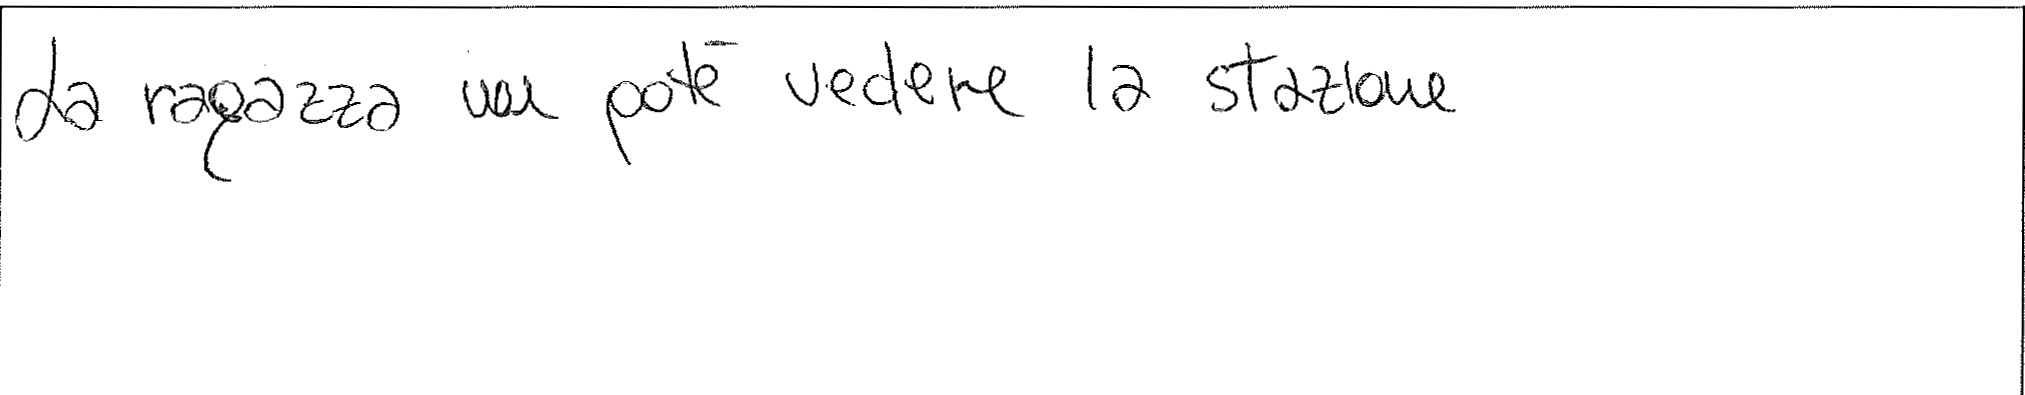 La ragazza non poté vedere la stazione